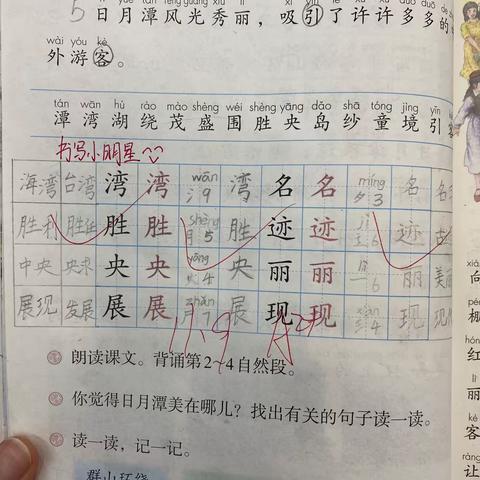 5 日月潭风光秀丽，吸引了许许多多的
wài yóu kè
外游客。
tán wān hú rào mào shèng wéi shèng yāng dǎo shā tóng jìng yǐn
潭湾湖绕茂盛围胜央岛纱童境引
书写小明星
海湾 台湾 湾 湾 wān 氵9 湾 名 名 míng 夕3 名 名
胜利 胜任 胜 胜 shèng 月5 胜 迹 迹 6 迹 古
中央 央求 央 央 yāng 4 央 丽 丽 lì 一6 丽 美丽
展现 发展 展 展 zhǎn 7 展 现 现 xiàn 4 现 现
朗读课文。背诵第2~4自然段。
你觉得日月潭美在哪儿？找出有关的句子读一读。
读一读，记一记。
群山环绕
向
棚
hóng
红
lì
丽
kè
客
ràng
让